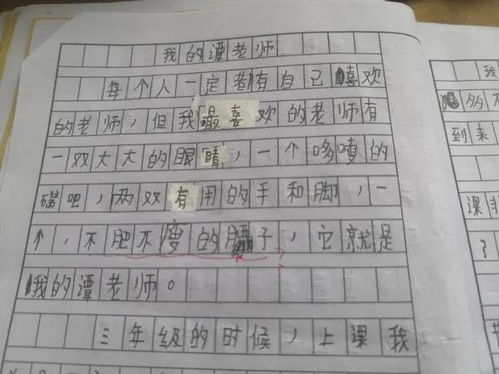 我的潭老师
每个人一定都有自己喜欢
的老师，但我最喜欢的老师有
一双大大的眼睛，一个哆嗦的
嘴吧，两双有用的手和脚，一
个，不肥不瘦的肚子，它就是
我的潭老师。
三年级的时候，上课我
我
多
到来
课
？